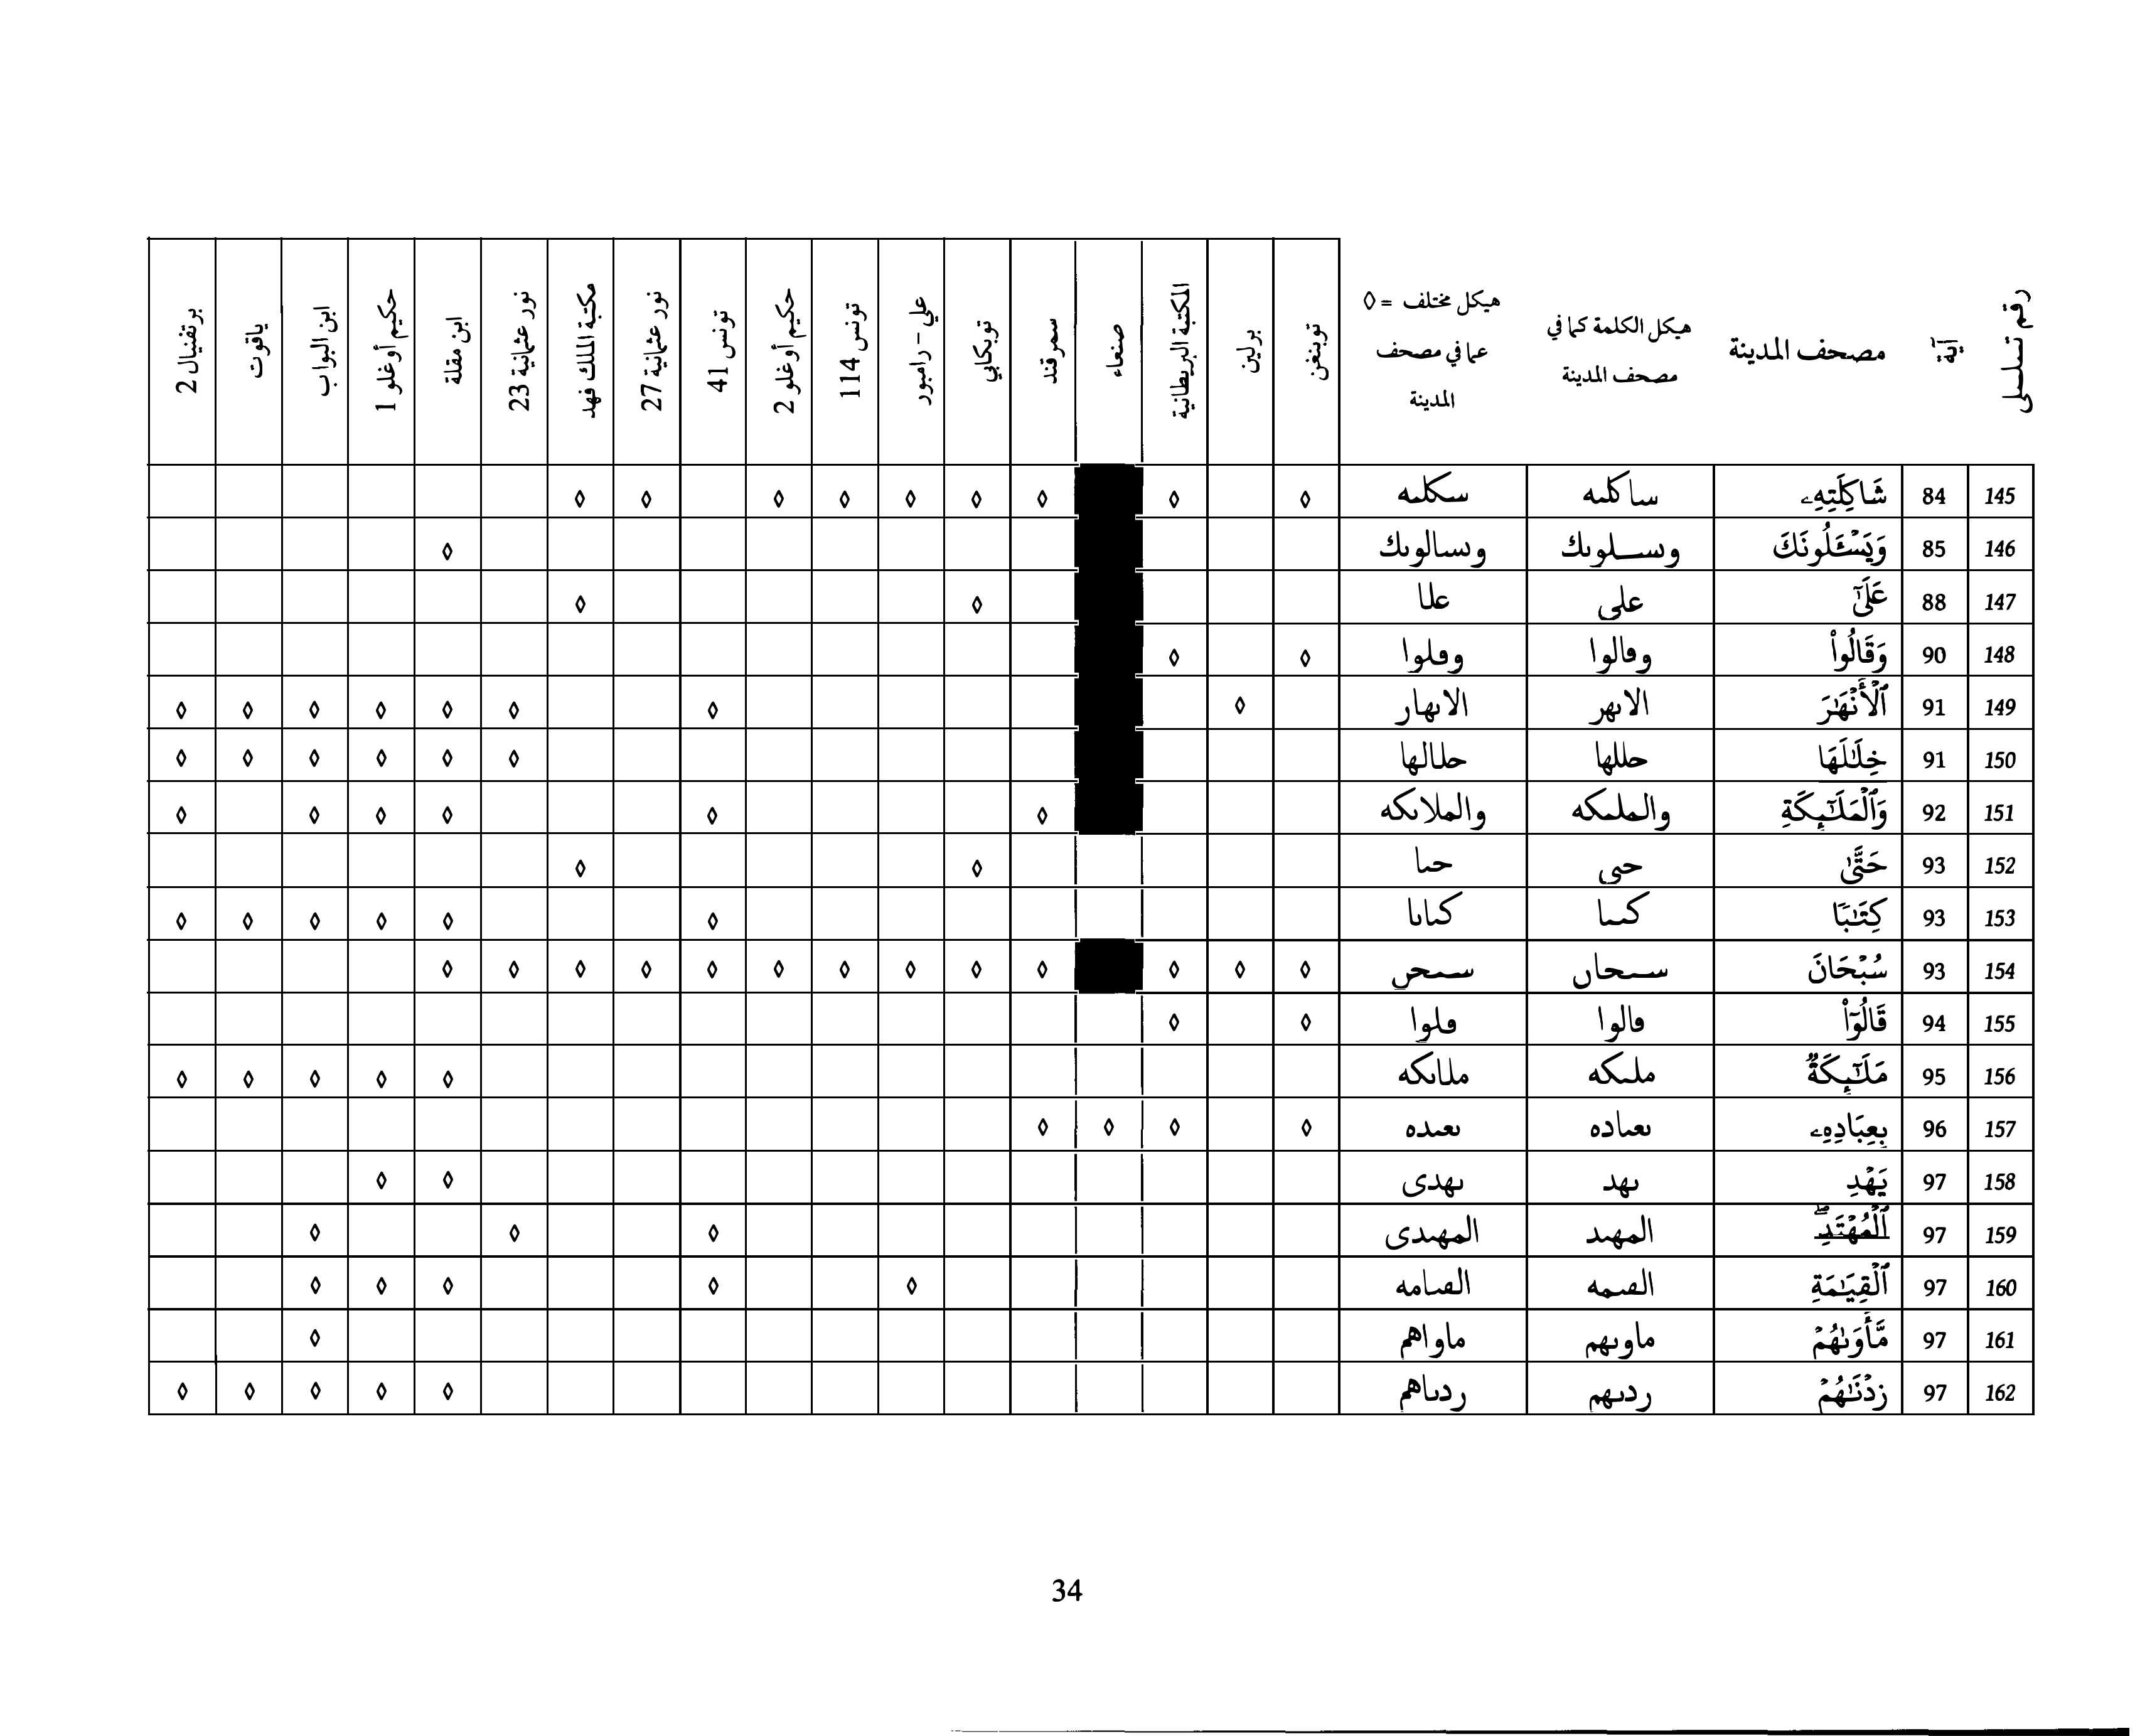 رقم تسلسلي	آية	مصحف المدينة	هيكل الكلمة كما في مصحف المدينة	◊ = هيكل مختلف عما في مصحف المدينة	توبنغن	برلين	المكتبة البريطانية	صنعاء	سمرقند	توبكابي	علي – رامبور	تونس 114	حكيم أوغلو 2	تونس 41	نور عثمانية 27	مكتبة الملك فهد	نور عثمانية 23	ابن مقلة	حكيم أوغلو 1	ابن البواب	ياقوت	برتفنيال 2
145	84	شَاكِلَتِهِۦ	ساكلٮه	سكلٮه	◊		◊		◊	◊	◊	◊	◊		◊	◊
146	85	وَيَسْـَٔلُونَكَ	وٮسـلوٮك	وٮسالوٮك														◊
147	88	عَلَىٰٓ	على	علا						◊						◊
148	90	وَقَالُوا۟	وڡالوا	وڡلوا	◊		◊
149	91	ٱلْأَنْهَٰرَ	الاٮهر	الاٮهار		◊								◊			◊	◊	◊	◊	◊	◊
150	91	خِلَٰلَهَا	حللها	حلالها													◊	◊	◊	◊	◊	◊
151	92	وَٱلْمَلَٰٓئِكَةِ	والملٮكه	والملاٮكه					◊					◊				◊	◊	◊		◊
152	93	حَتَّىٰ	حٮى	حٮا						◊						◊
153	93	كِتَٰبًا	كٮٮا	كٮاٮا										◊				◊	◊	◊	◊	◊
154	93	سُبْحَانَ	سٮحاں	سٮحں	◊	◊	◊		◊	◊	◊	◊	◊	◊	◊	◊	◊	◊
155	94	قَالُوٓا۟	ڡالوا	ڡلوا	◊		◊
156	95	مَلَٰٓئِكَةٌ	ملٮكه	ملاٮكه														◊	◊	◊	◊	◊
157	96	بِعِبَادِهِۦ	ٮعٮاده	ٮعٮده	◊		◊	◊	◊
158	97	يَهْدِ	ٮهد	ٮهدى														◊	◊
159	97	ٱلْمُهْتَدِ ۖ	المهٮد	المهٮدى										◊			◊			◊
160	97	ٱلْقِيَٰمَةِ	الڡٮمه	الڡٮامه							◊			◊				◊	◊	◊
161	97	مَّأْوَىٰهُمْ	ماوٮهم	ماواهم																◊
162	97	زِدْنَٰهُمْ	ردٮهم	ردٮاهم														◊	◊	◊	◊	◊
34